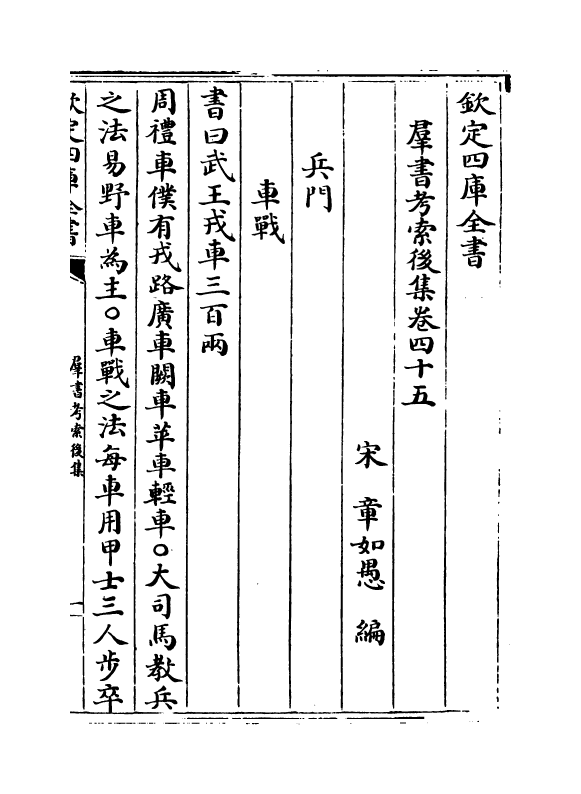 欽定四庫全書
羣書考索後集卷四十五
宋 章如愚 編
兵門
車戰
書曰武王戎車三百兩
周禮車僕有戎路廣車闕車苹車輕車○大司馬教兵
之法易野車為主○車戰之法每車用甲士三人步卒
欽定四庫全書
羣書考索後集
一